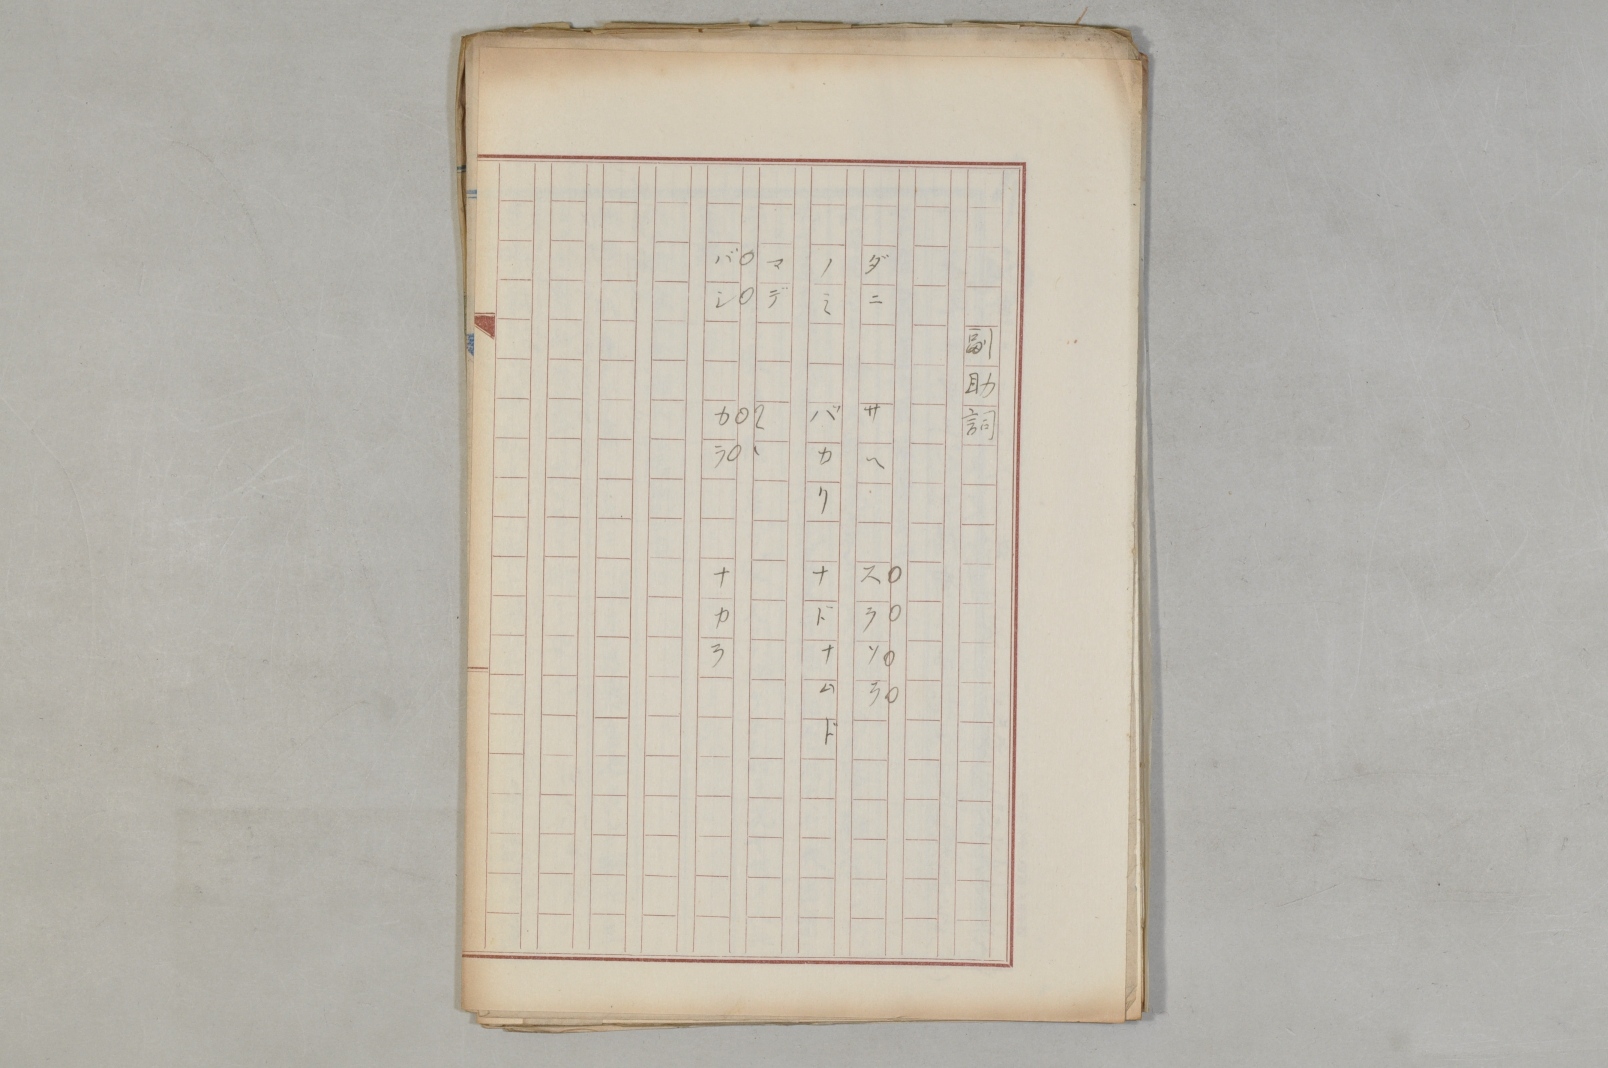 副助詞
ダニ　サヘ　スラソラ
ノミ　バカリ　ナドナムド
マデ
バシ　カラ　ナカラ